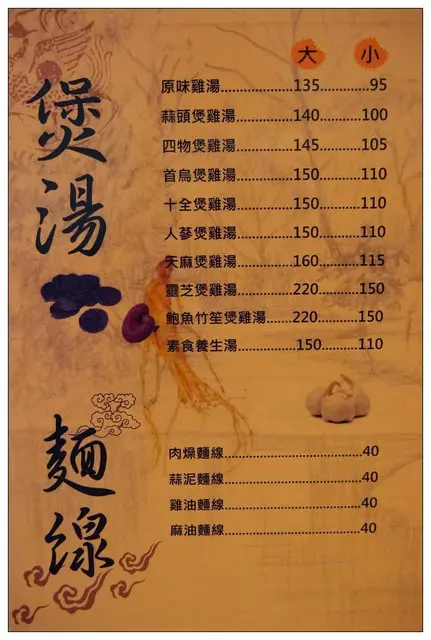 煲湯
大 小
原味雞湯....................135..............95
蒜頭煲雞湯................140............100
四物煲雞湯................145............105
首烏煲雞湯................150............110
十全煲雞湯................150............110
人蔘煲雞湯................150............110
天麻煲雞湯................160............115
靈芝煲雞湯................220............150
鮑魚竹笙煲雞湯........220............150
素食養生湯................150............110
麵線
肉燥麵線....................................40
蒜泥麵線....................................40
雞油麵線....................................40
麻油麵線....................................40